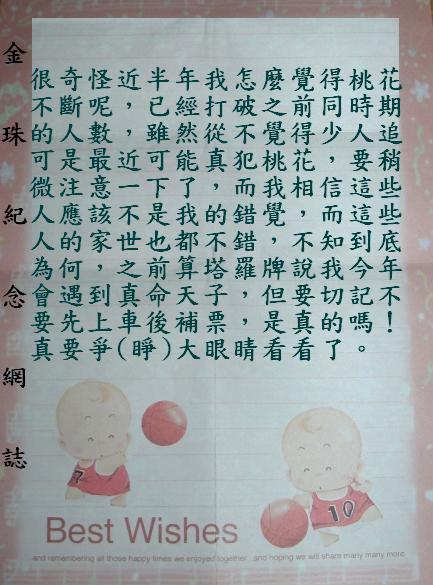 金珠紀念網誌
很奇怪近半年我怎麼覺得桃花
不斷呢，已經打破之前同時期
的人數，雖然從不覺得少，追
可是最近可能真犯桃花，要稍
微注意一下了，而我相信這些
人應該不是我的錯覺，而這些
人的家世也都不錯，不知到底
為何，之前算塔羅牌說我今年
會遇到真命天子，但要切記不
要先上車後補票，是真的嗎！
真要爭(睜)大眼睛看看了。
Best Wishes
and remembering all those happy times we enjoyed together...and hoping we will share many many more
7
10